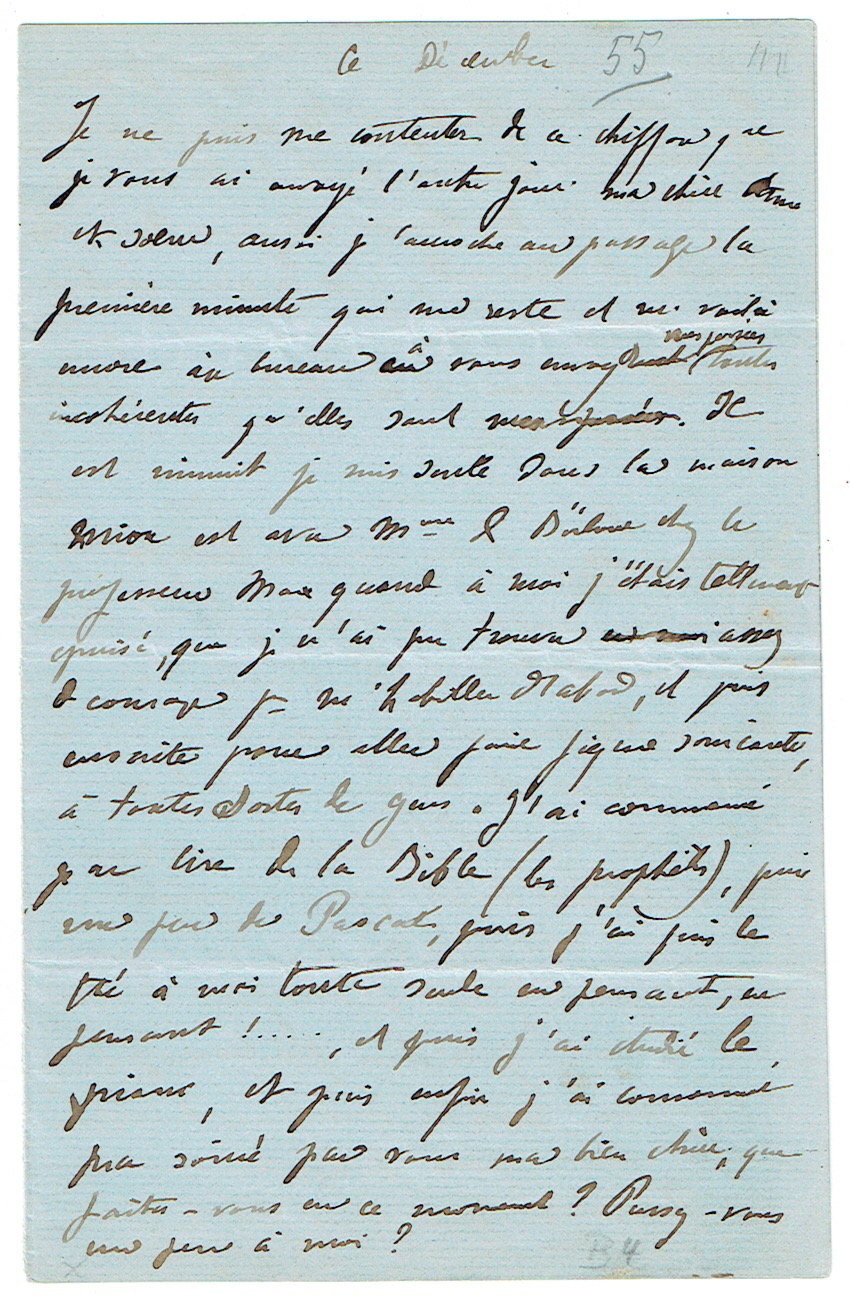 Ce Décember 55
Je ne puis me contenter de ce chiffon, que
je vous ai envoyé l'autre jour ma chère âme
et soeur, aussi j'accroche au passage la
première minute qui me reste et me voilà
encore au bureau à vous envoyer mes pensées toutes
incohérentes qu'elles sont mes pensées. Il
est minuit je suis seule dans la maison
est avec Mme de Bülow chez le
professeur Max quand à moi j'étais tellement
épuisé, que je n'ai pu trouver en moi assez
de courage pr m'habiller d'abord, et puis
ensuite pour aller faire figure souriante,
à toutes sortes de gens. J'ai commencé
par lire de la Bible (les prophêts), puis
un peu de Pascal, puis j'ai pris le
thé à moi toute seule en pensant, en
pensant !....., et puis j'ai étudié le
piano, et puis enfin j'ai commencé
ma soirée par vous ma bien chère, que
faites-vous en ce moment ? Pensez-vous
un peu à moi ?
B4